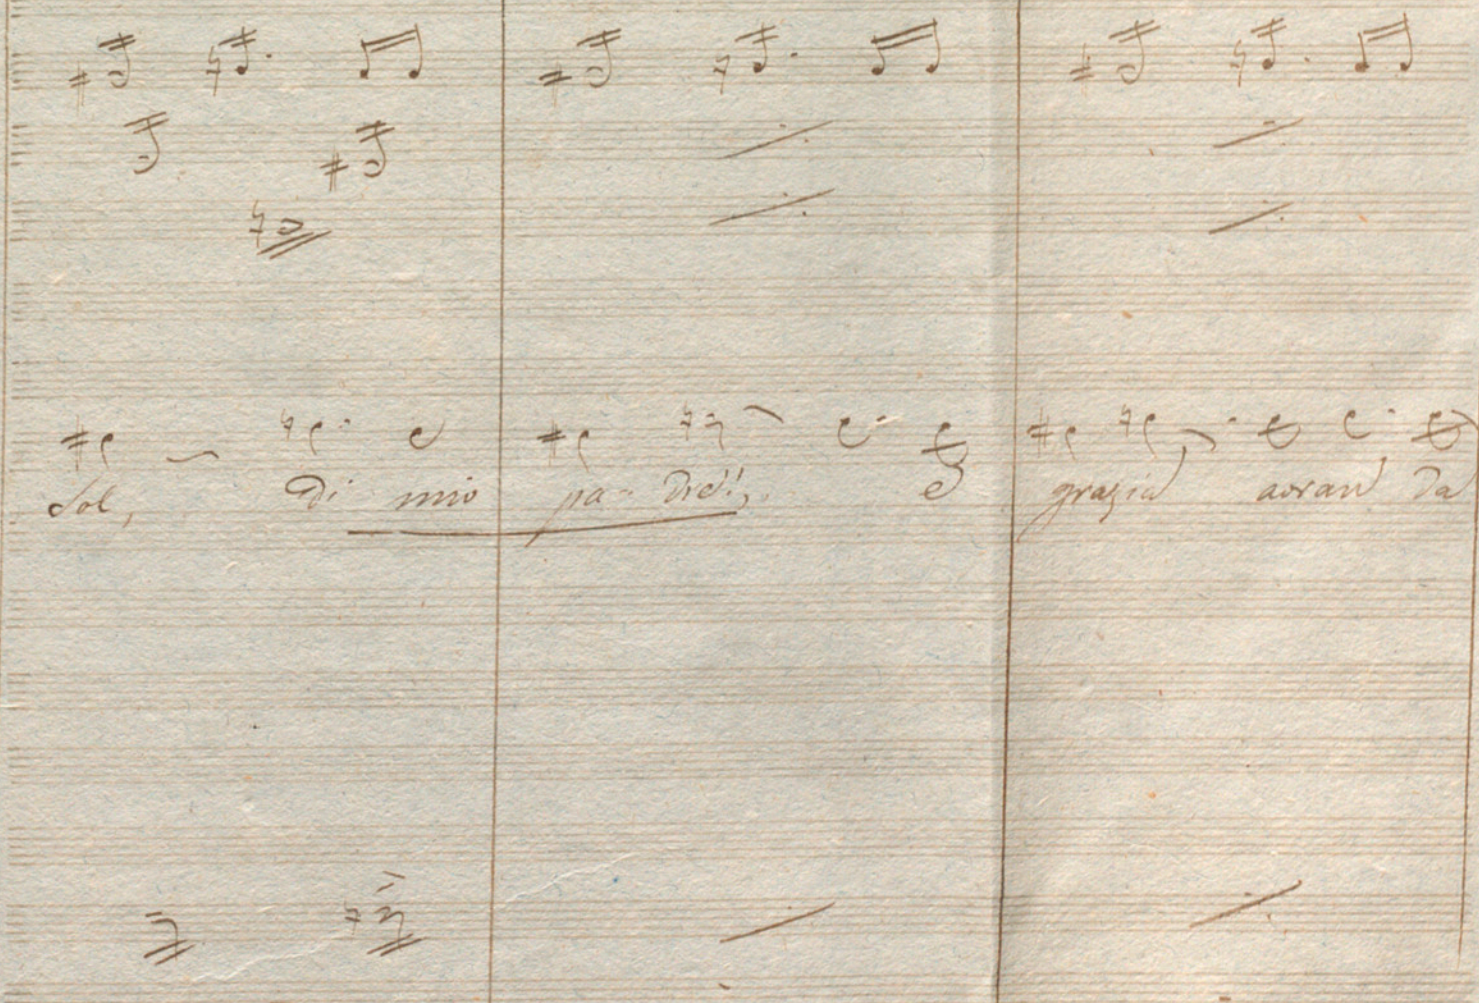 sol, di mio pa- dre!, e grazia avran da